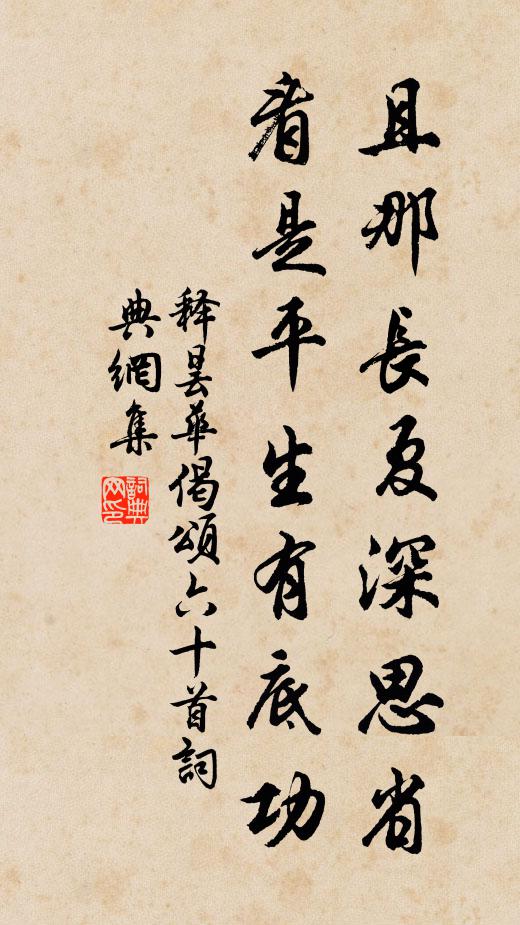 且那長夏深思省
看是平生有底功
释曇華偈頌六十首詞
典網集
詞典网印